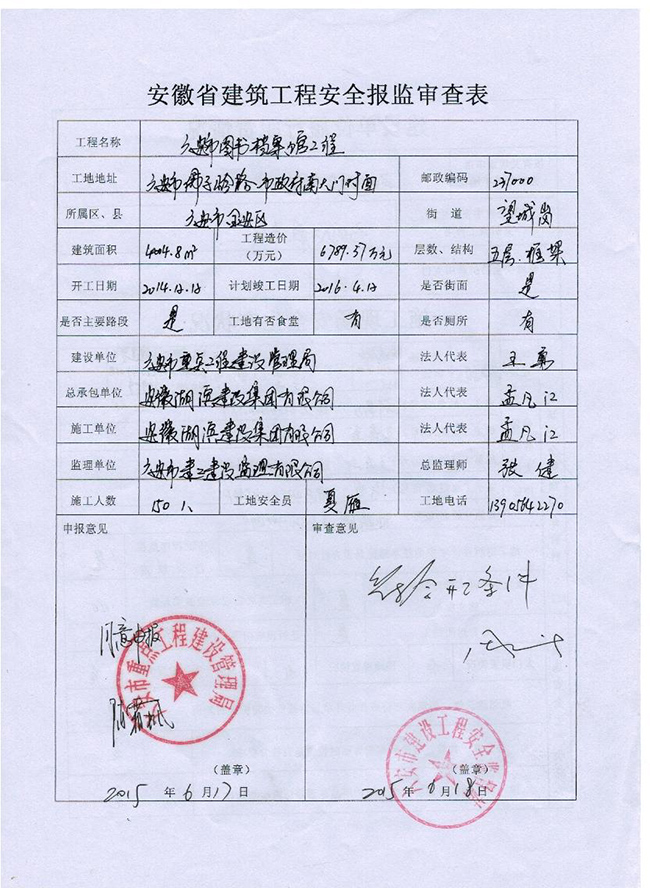 安徽省建筑工程安全报监审查表
工程名称 六安市图书档案馆工程
工地地址 六安市佛子岭路市政府南大门对面 邮政编码 237000
所属区、县 六安市金安区 街道 望城岗
建筑面积 4004.8m² 工程造价（万元） 6789.37万元 层数、结构 五层.框架
开工日期 2014.12.12 计划竣工日期 2016.4.12 是否街面 是
是否主要路段 是 工地有否食堂 有 是否厕所 有
建设单位 六安市重点工程建设管理局 法人代表 王勇
总承包单位 安徽湖滨建设集团有限公司 法人代表 孟凡江
施工单位 安徽湖滨建设集团有限公司 法人代表 孟凡江
监理单位 六安市建工建设监理有限公司 总监理师 张健
施工人数 150人 工地安全员 夏雁 工地电话 13905642270
申报意见 审查意见
开工条件
同意申报
六安市重点工程建设管理局
六安市建设工程安全监督站
（盖章） （盖章）
2015年6月17日 2015年6月18日